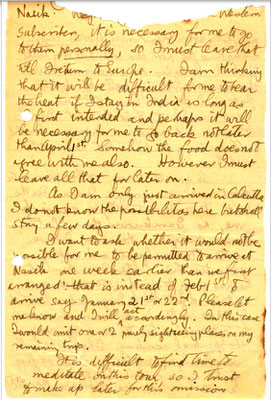 Nasik. Western
Subscribers, it is necessary for me to go
to them personally, so I must leave that
till I return to Europe. I am thinking
that it will be difficult for me to bear
the heat if I stay in India as long as
I first intended and perhaps it will
be necessary for me to go back not later
than April 1st. Somehow the food does not
agree with me also. However I must
leave all that for later on.
As I am only just arrived in Calcutta
I do not know the possibilities here but shall
stay a few days
I want to ask whether it would not be
possible for me to be permitted to arrive at
Nasik one week earlier than we first
arranged: that is instead of Feb 1st to
arrive say January 21st or 22nd. Please let
me know and I will act accordingly. In this case
I would omit one or 2 purely sightseeing places on my
remaining trip.
It is difficult to find time to
meditate on this tour, so I trust
to make up later for this omission